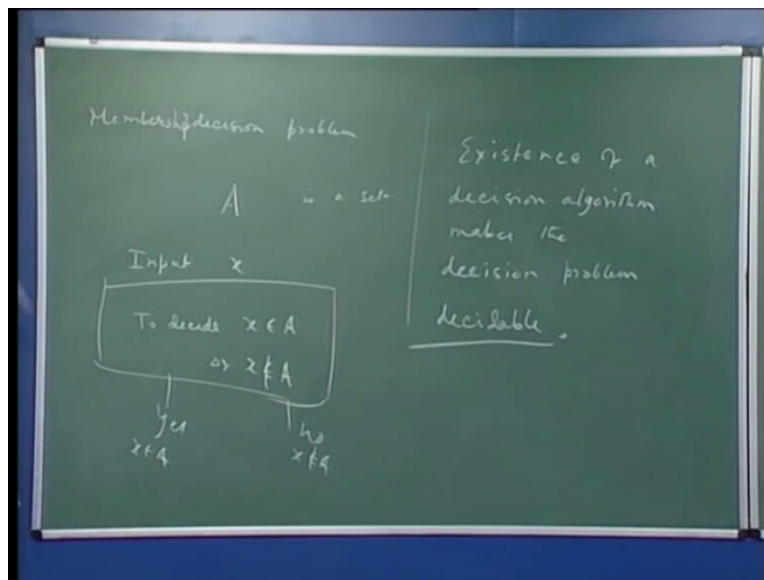 Membership decision problem
A is a set
Input x
To decide x ∈ A
or x ∉ A
Yes
x ∈ A
No
x ∉ A
Existence of a
decision algorithm
makes the
decision problem
decidable.